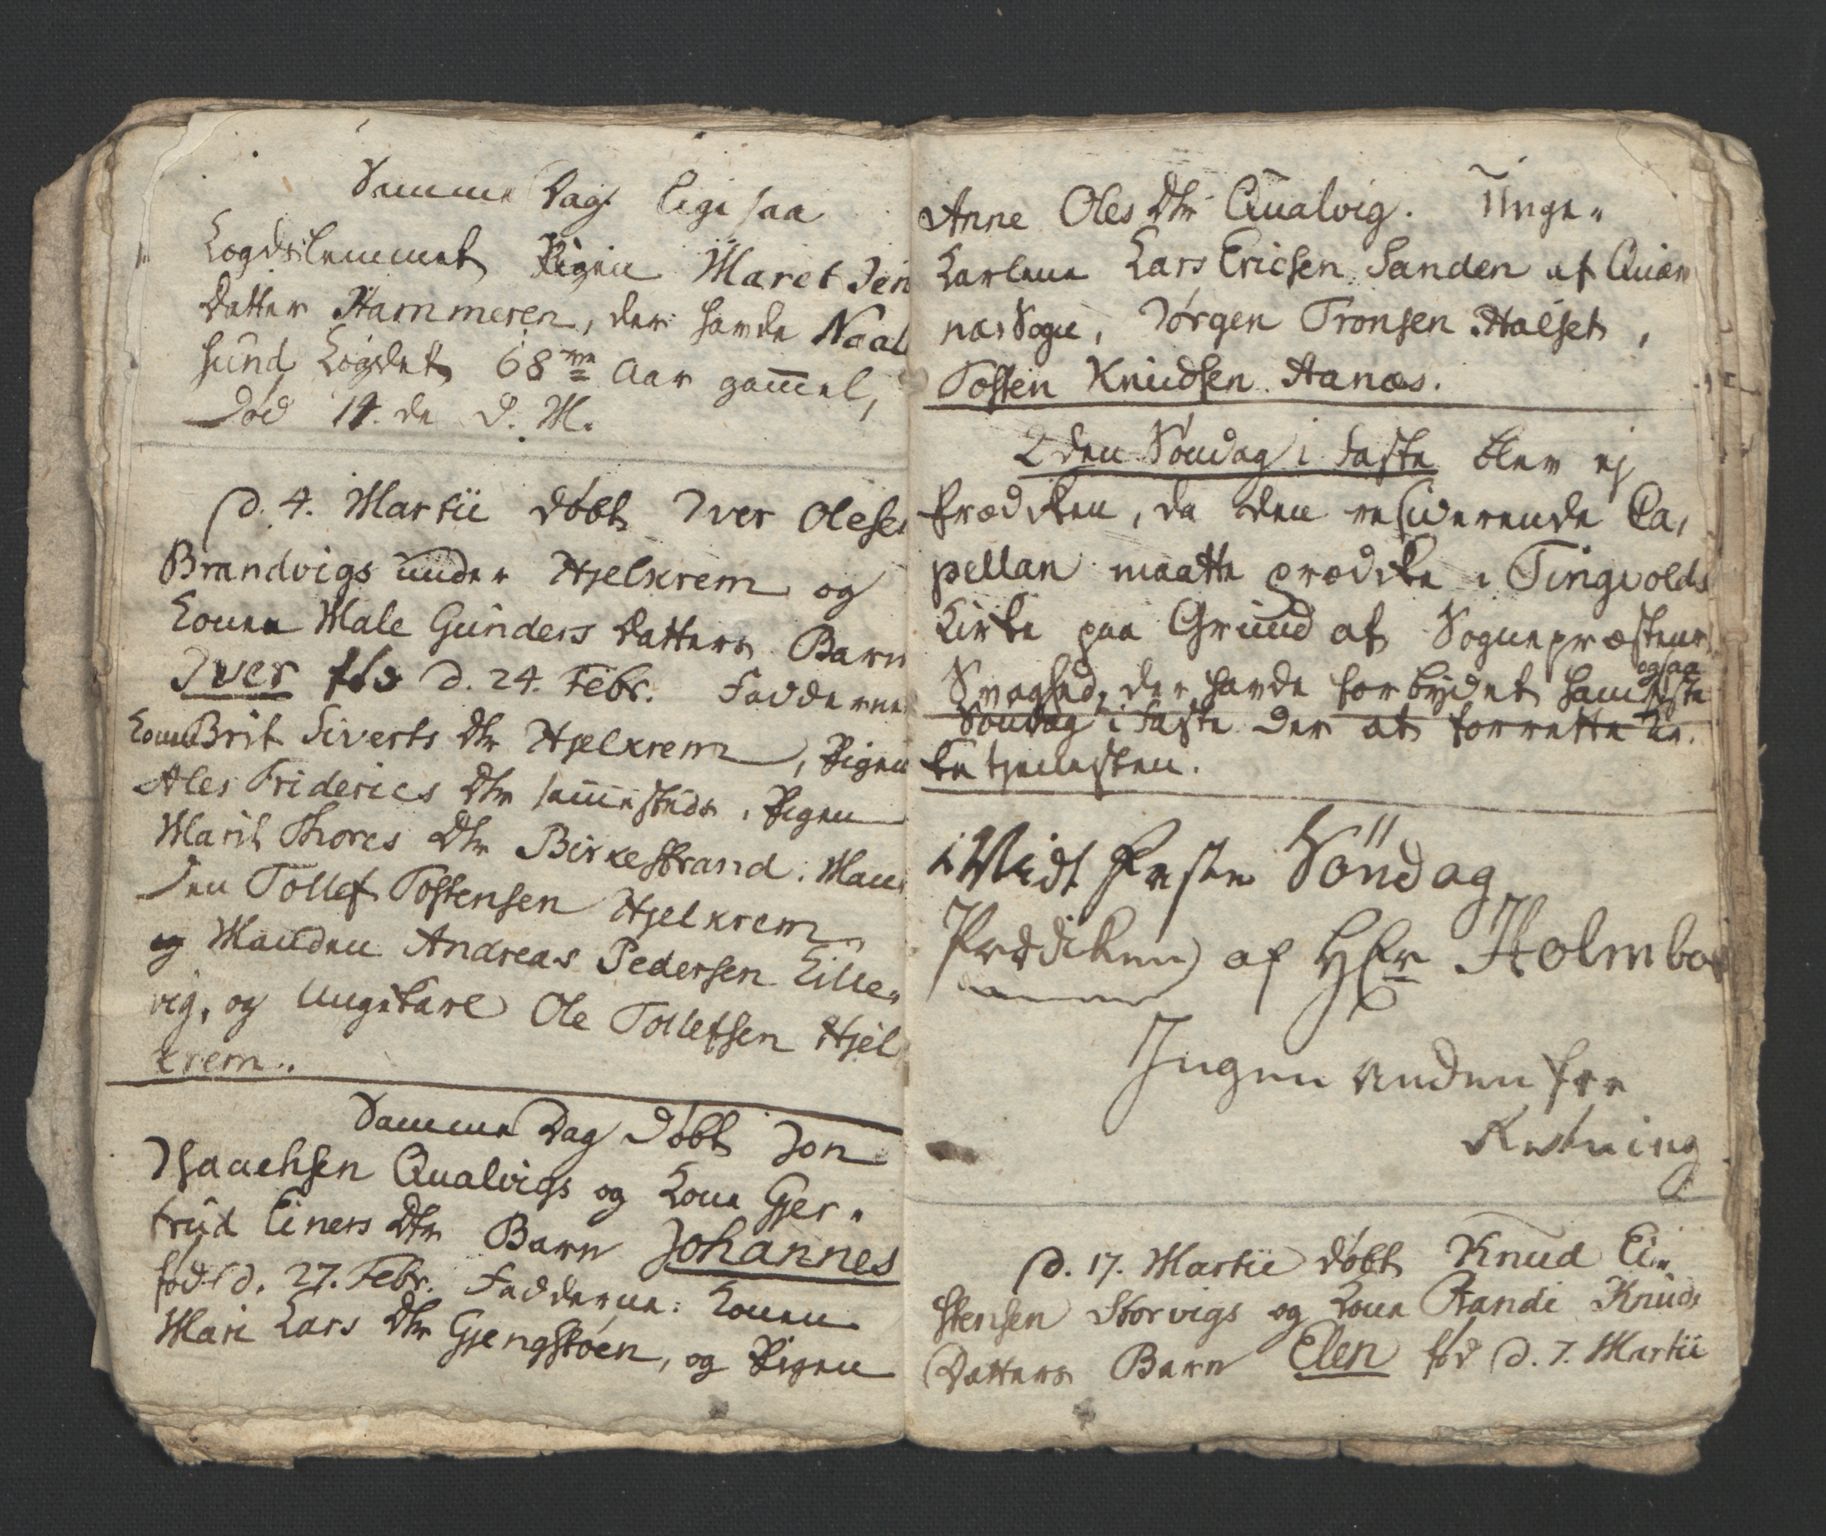 Samme Dag ligesaa
Logdslemmet Pigen Maret Jens
Datter Hammeren, der havde Naal
sund Logdet 68me Aar gam̅el,
Død 14.de d. M.
d. 4. Martii døbt Iver Olesen
Brandvigs under Hjelkrem og
Konen Male Gunders Datters Barn
Iver fød d. 24. Febr. Fadderne
Konen Brit Siverts Dtr Hjelkrem, Pigen
Ales Friderics Dtr sam̅esteds, Pigen
Marit Thores Dtr Birkestrand. Man-
den Tollef Tostensen Hjelkrem
og Manden Andreas Pedersen Lille-
vig, og Ungekarl Ole Tollefsen Hjel
krem.
Samme Dag døbt Jon
Isaachsen Qualvigs og Kone Gjer-
trud Einers Dtr Barn Johannes
fød d. 27. Febr. Fadderne: Konen
Mari Lars Dtr Gjengstøen, og Pigen
Anne Oles Dtr Qualvig. Unge-
Karlene Lars Ericsen Sanden af Quær
næs Sogn, Jørgen Tronsen Halset,
Tosten Knudsen Aanæs.
2den Søndag i Faste blev ej
Prædiken, da den residerende Ca-
pellan maatte prædike i Tingvolds
Kirke paa Grund af Sognepræstens
Svaghed, der havde forbydet ham ogsaa 1ste
Søndag i Faste der at forrette Kir-
ketjenesten.
Midt Faste Söndag
Prædiken af Hr Holmboe
Ingen anden for
Retning
d. 17. Martii døbt Knud Ei-
stensen Storvigs og Kone Randi Knuds
Datters Barn Elen fød d. 7. Martii